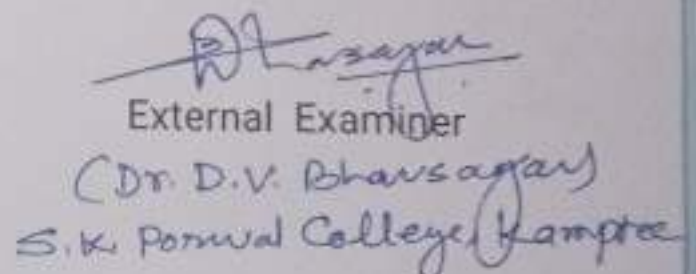 External Examiner
(Dr. D.V. Bhavsagar)
S.K. Porwal College, Kamptee